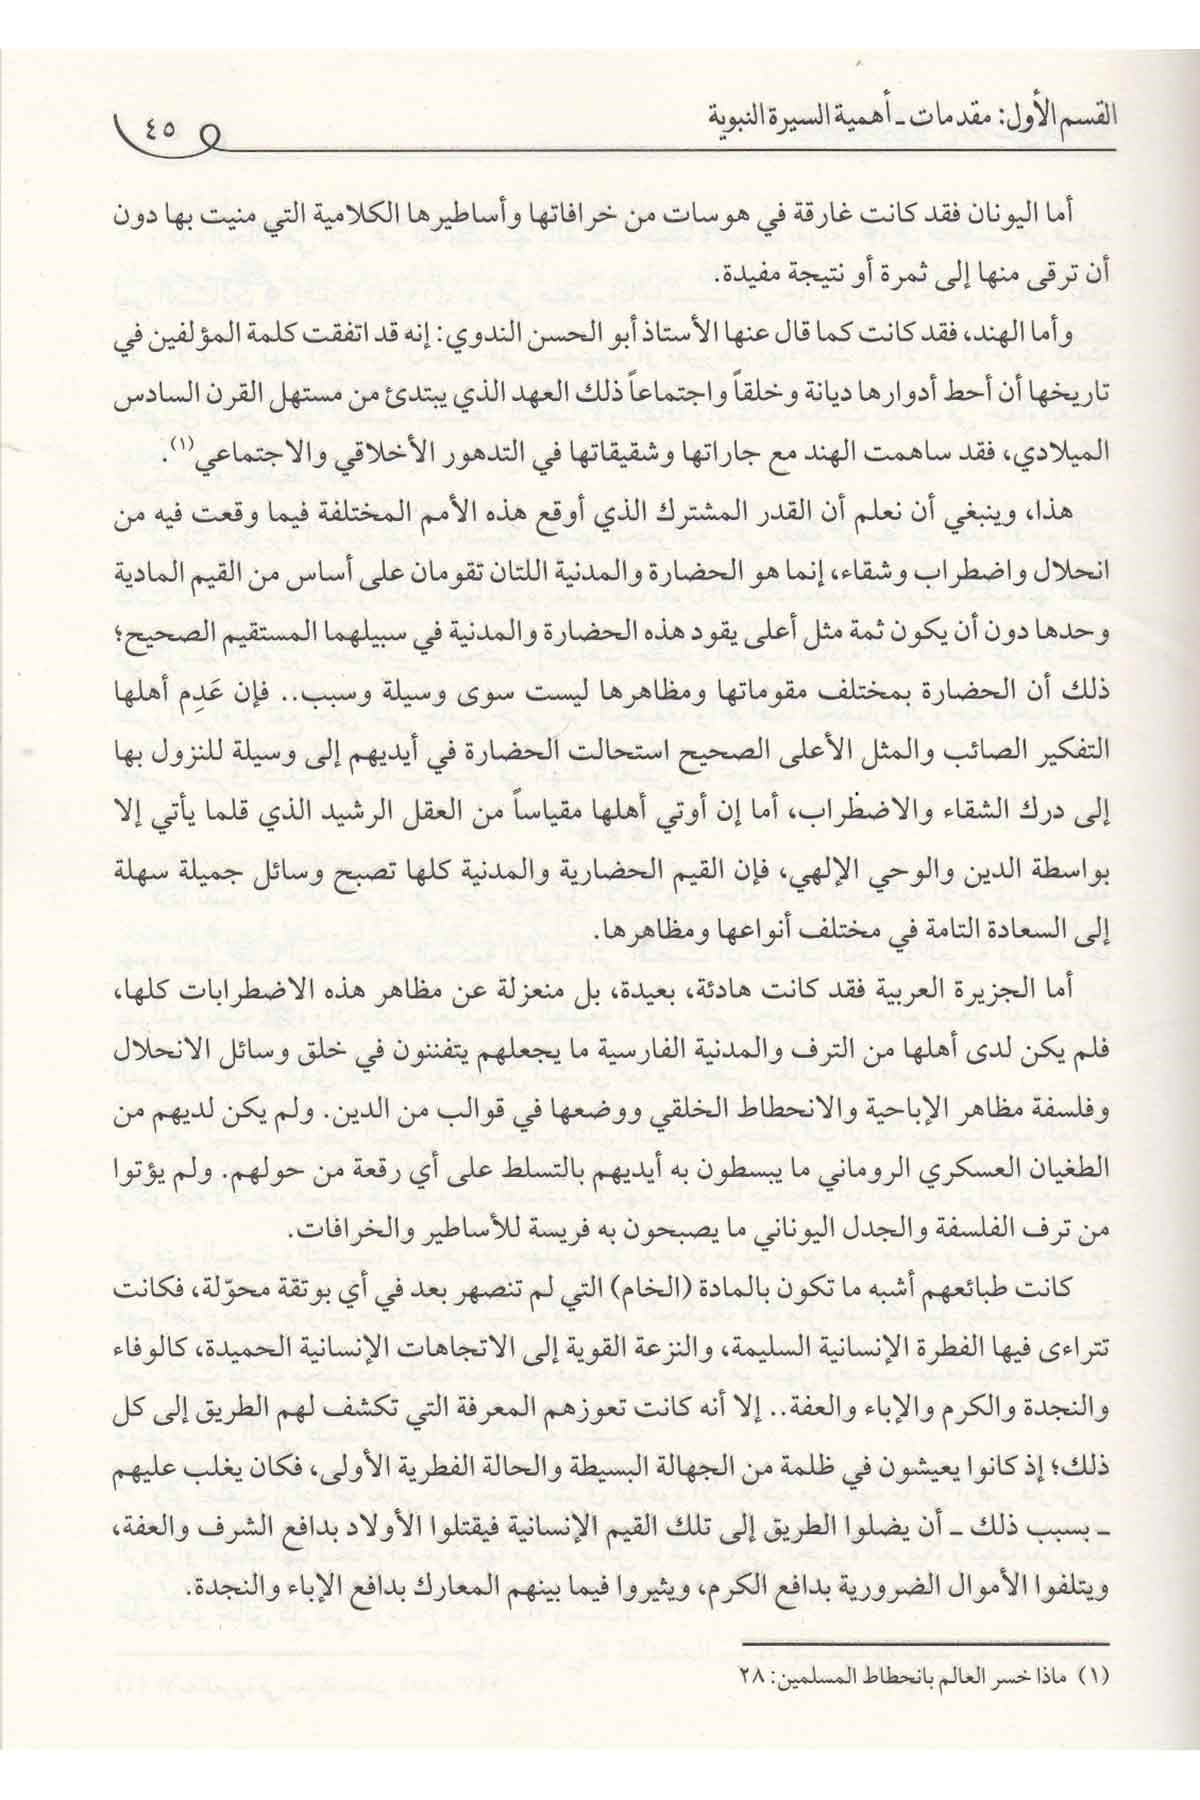 القسم الأول: مقدمات ـ أهمية السيرة النبوية
٤٥
أما اليونان فقد كانت غارقة في هوسات من خرافاتها وأساطيرها الكلامية التي منيت بها دون
أن ترقى منها إلى ثمرة أو نتيجة مفيدة.
وأما الهند، فقد كانت كما قال عنها الأستاذ أبو الحسن الندوي: إنه قد اتفقت كلمة المؤلفين في
تاريخها أن أحط أدوارها ديانة وخلقاً واجتماعاً ذلك العهد الذي يبتدئ من مستهل القرن السادس
الميلادي، فقد ساهمت الهند مع جاراتها وشقيقاتها في التدهور الأخلاقي والاجتماعي(١).
هذا، وينبغي أن نعلم أن القدر المشترك الذي أوقع هذه الأمم المختلفة فيما وقعت فيه من
انحلال واضطراب وشقاء، إنما هو الحضارة والمدنية اللتان تقومان على أساس من القيم المادية
وحدها دون أن يكون ثمة مثل أعلى يقود هذه الحضارة والمدنية في سبيلهما المستقيم الصحيح؛
ذلك أن الحضارة بمختلف مقوماتها ومظاهرها ليست سوى وسيلة وسبب.. فإن عَدِم أهلها
التفكير الصائب والمثل الأعلى الصحيح استحالت الحضارة في أيديهم إلى وسيلة للنزول بها
إلى درك الشقاء والاضطراب، أما إن أوتي أهلها مقياساً من العقل الرشيد الذي قلما يأتي إلا
بواسطة الدين والوحي الإلهي، فإن القيم الحضارية والمدنية كلها تصبح وسائل جميلة سهلة
إلى السعادة التامة في مختلف أنواعها ومظاهرها.
أما الجزيرة العربية فقد كانت هادئة، بعيدة، بل منعزلة عن مظاهر هذه الاضطرابات كلها،
فلم يكن لدى أهلها من الترف والمدنية الفارسية ما يجعلهم يتفننون في خلق وسائل الانحلال
وفلسفة مظاهر الإباحية والانحطاط الخلقي ووضعها في قوالب من الدين. ولم يكن لديهم من
الطغيان العسكري الروماني ما يبسطون به أيديهم بالتسلط على أي رقعة من حولهم. ولم يؤتوا
من ترف الفلسفة والجدل اليوناني ما يصبحون به فريسة للأساطير والخرافات.
كانت طبائعهم أشبه ما تكون بالمادة (الخام) التي لم تنصهر بعد في أي بوتقة محوّلة، فكانت
تتراءى فيها الفطرة الإنسانية السليمة، والنزعة القوية إلى الاتجاهات الإنسانية الحميدة، كالوفاء
والنجدة والكرم والإباء والعفة.. إلا أنه كانت تعوزهم المعرفة التي تكشف لهم الطريق إلى كل
ذلك؛ إذ كانوا يعيشون في ظلمة من الجهالة البسيطة والحالة الفطرية الأولى، فكان يغلب عليهم
ـ بسبب ذلك ـ أن يضلوا الطريق إلى تلك القيم الإنسانية فيقتلوا الأولاد بدافع الشرف والعفة،
ويتلفوا الأموال الضرورية بدافع الكرم، ويثيروا فيما بينهم المعارك بدافع الإباء والنجدة.
(١) ماذا خسر العالم بانحطاط المسلمين: ٢٨